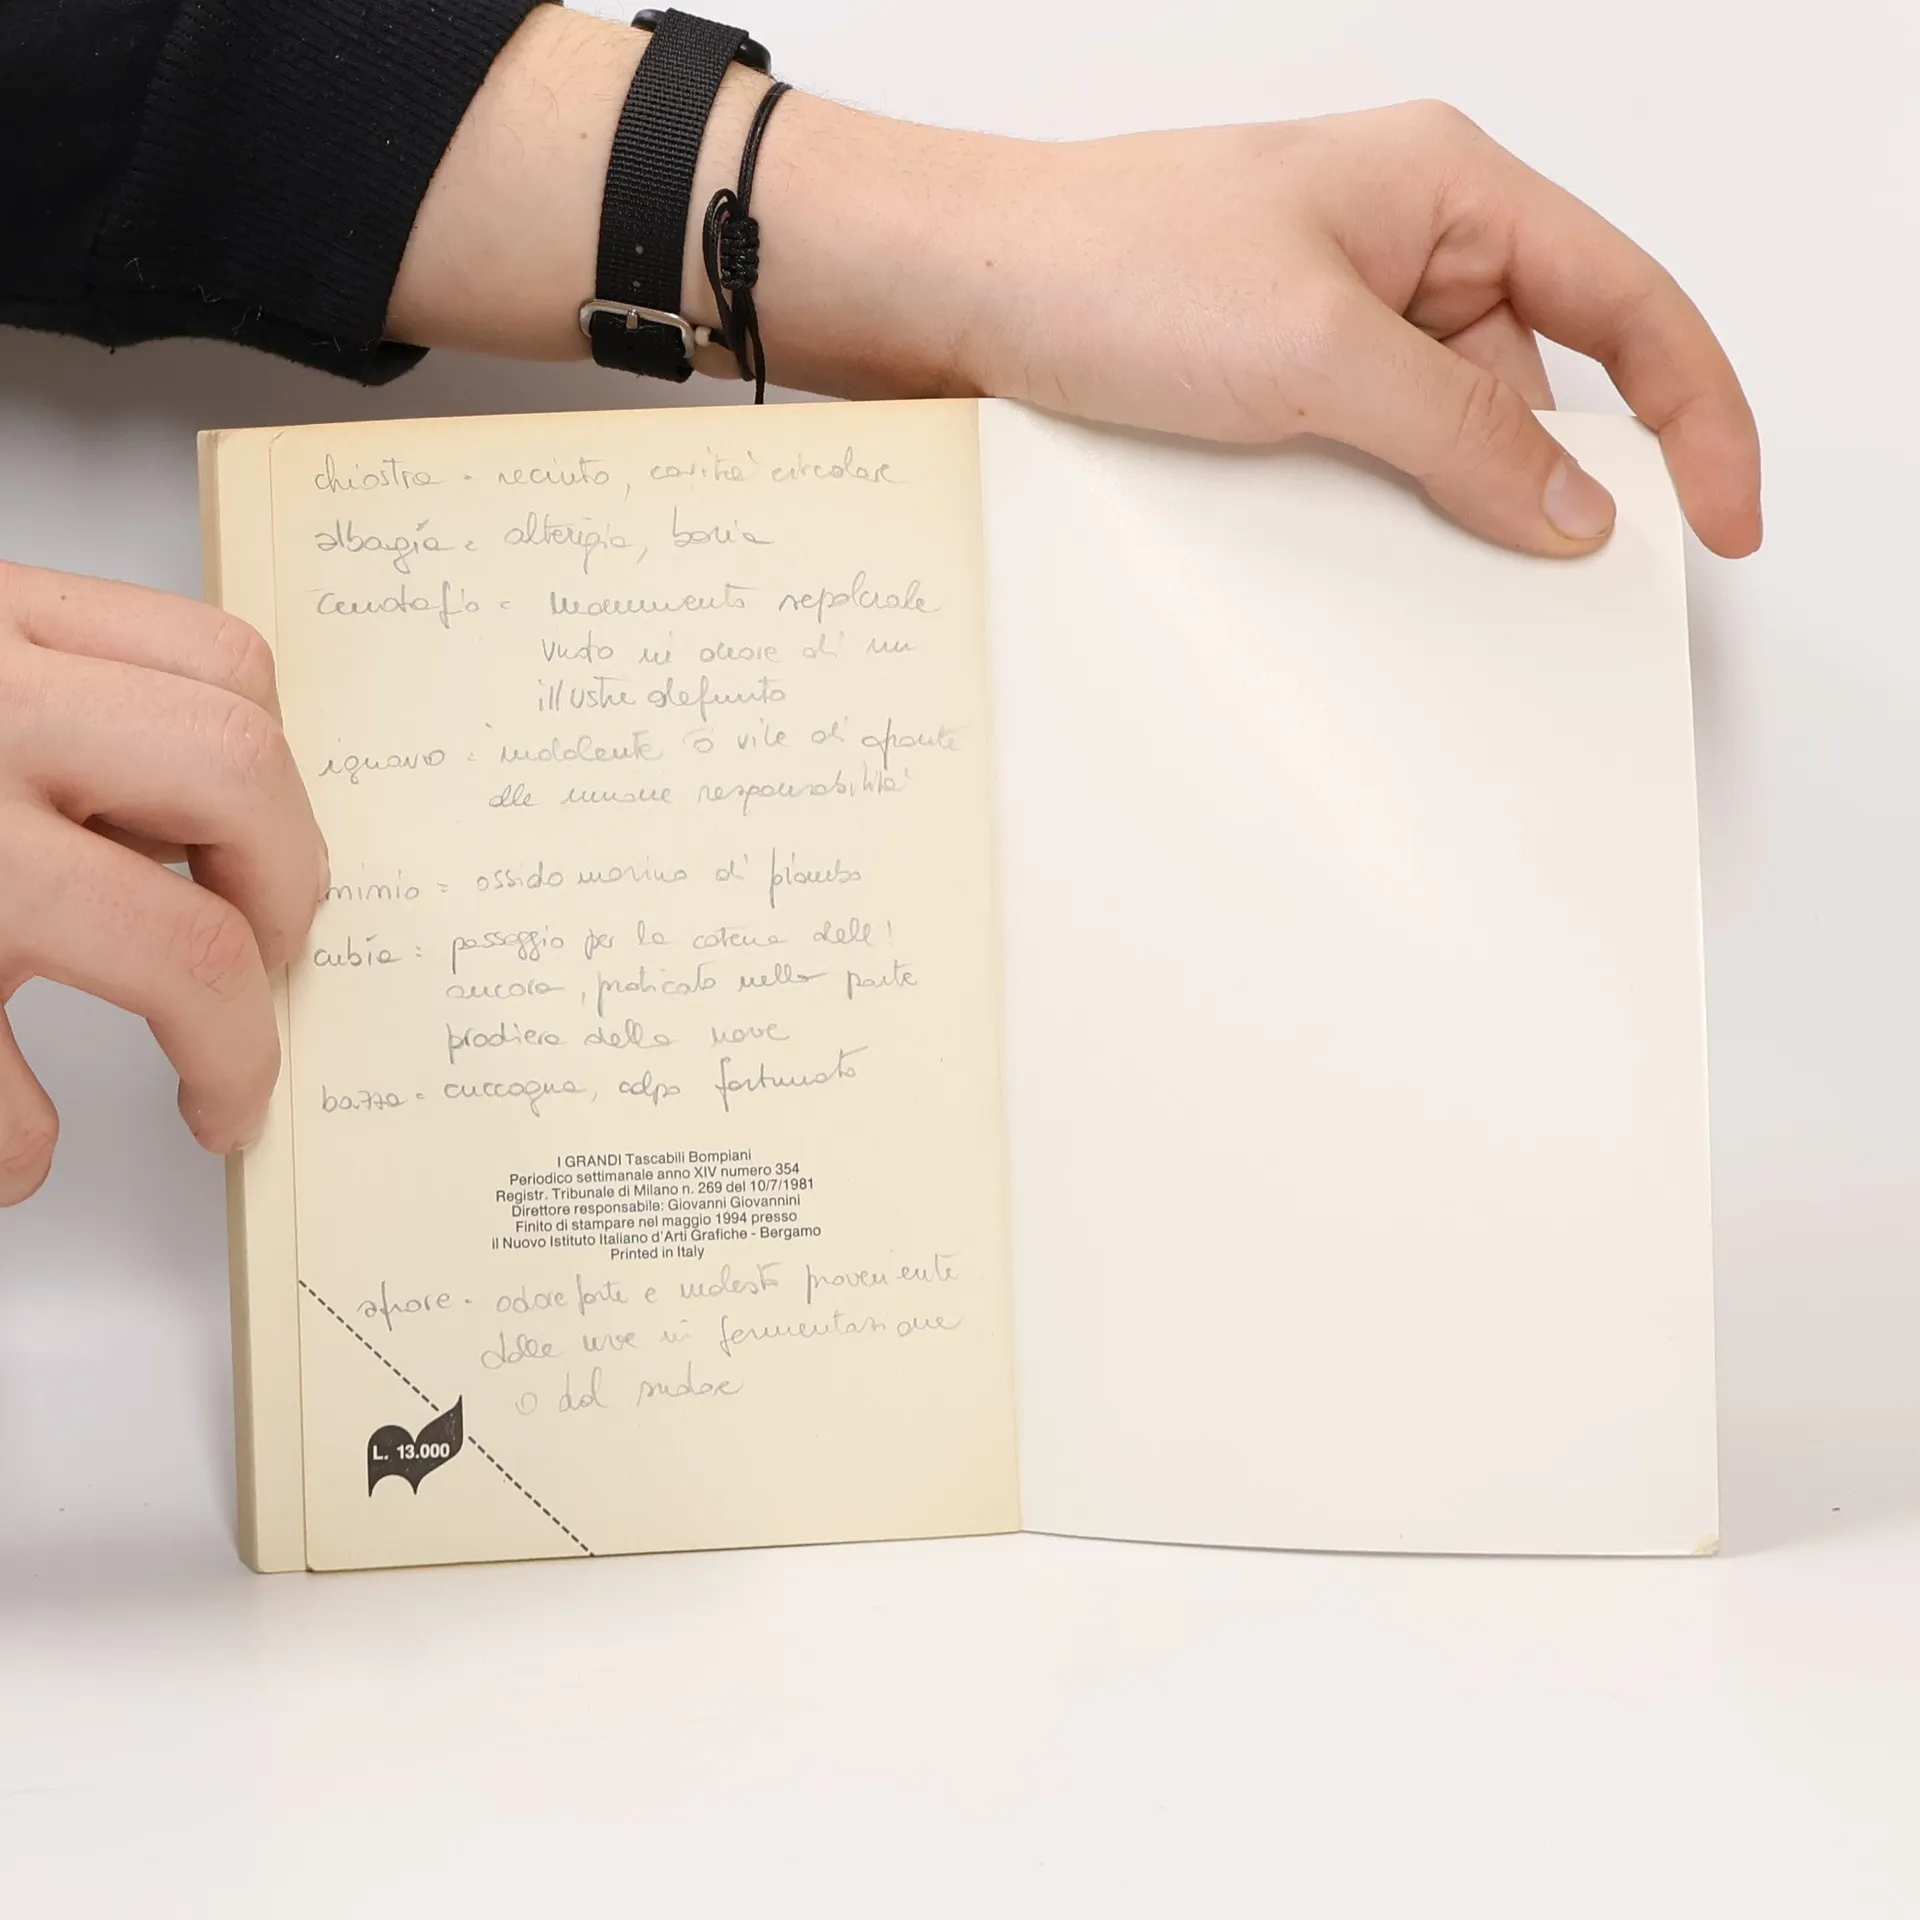 chiostra = recinto, cavità circolare
albagìa = alterigia, boria
cenotafio = monumento sepolcrale
vuoto in onore di un
illustre defunto
ignavo = indolente o vile di fronte
alle minime responsabilità
minio = ossido di piombo
cubìa = passaggio per la catena dell'
ancora, praticato nella parte
prodiera della nave
bazza = cuccagna, colpo fortunato
I GRANDI Tascabili Bompiani
Periodico settimanale anno XIV numero 354
Registr. Tribunale di Milano n. 269 del 10/7/1981
Direttore responsabile: Giovanni Giovannini
Finito di stampare nel maggio 1994 presso
il Nuovo Istituto Italiano d'Arti Grafiche - Bergamo
Printed in Italy
afrore = odore forte e molesto proveniente
dalle uve in fermentazione
o dal sudore
L. 13.000